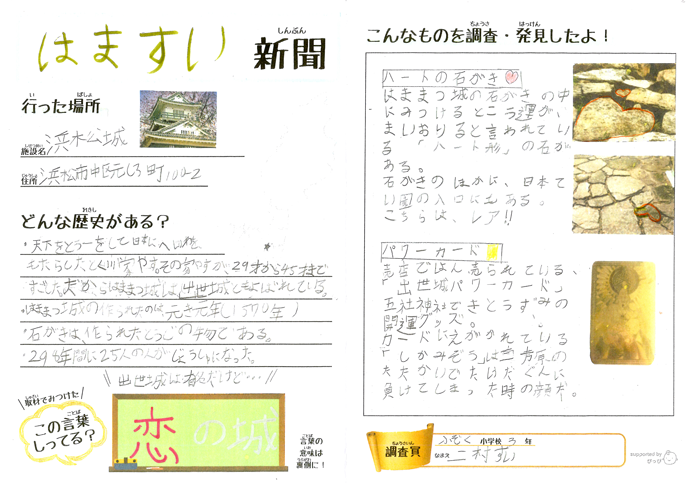 はますい 新聞
しんぶん
行った場所
い ばしょ
施設名 浜松城
住所 浜松市中区元城町100-2
どんな歴史がある?
れきし
・天下をとう一をして日本にへいわを
もたらしたとくが家やす。その家やすが、29才から45才まで
すごした。だからはままつ城は出世城ともよばれている。
・はままつ城の作られたのは、元き元年(1570年)
・石がきは、作られたとうじの物である。
\\出世城は有名だけど…//
取材でみつけた
しゅざい
この言葉
ことば
しってる?
恋の城
言葉の
意味は
裏側に!
こんなものを調査・発見したよ!
ちょうさ はっけん
ハートの石がき
はままつ城の石がきの中
にみつけるとこう運が、
まいおりると言われてい
る「ハート形」の石が
ある。
石がきのほかに、日本て
い園の入口にもある。
こちらは、レア!!
パワーカード
売店ではん売られている、
「出世城パワーカード」
五社神社できとうずみの
開運グッズ。
カードにえがかれている
「しかみぞう」は三方原の
たたかいでたけだぐんに
負けてしまった時の顔だ。
調査員
ちょうさいん
ふぞく 小学校 3 年
なまえ
supported by